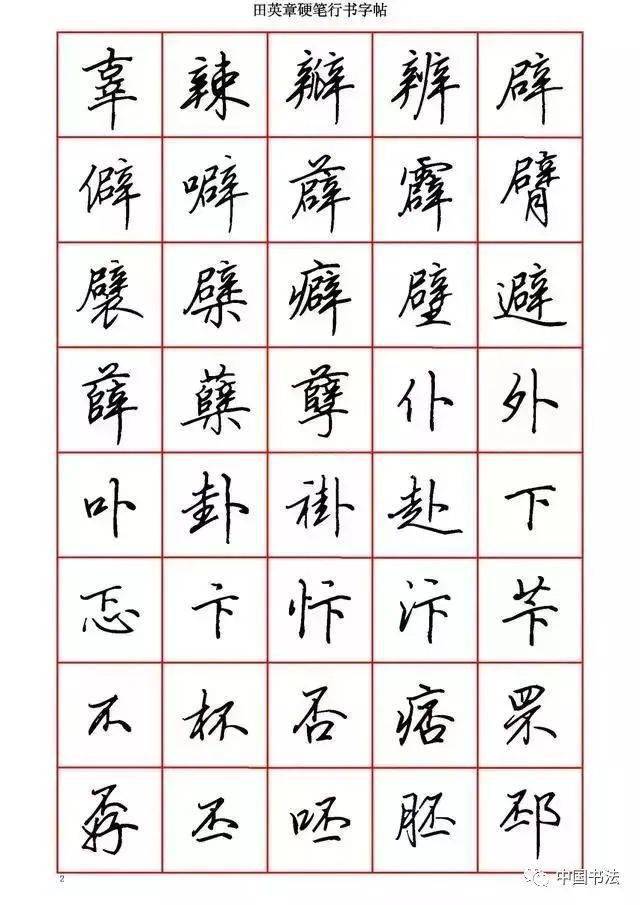 田英章硬笔行书字帖
辜辣瓣辨辟
僻噼薜霹臂
襞檗癖壁避
薛蘖孽仆外
卟卦褂赴下
忑卞忭汴苄
不杯否痞罘
孬丕呸胚邳
2
中国书法